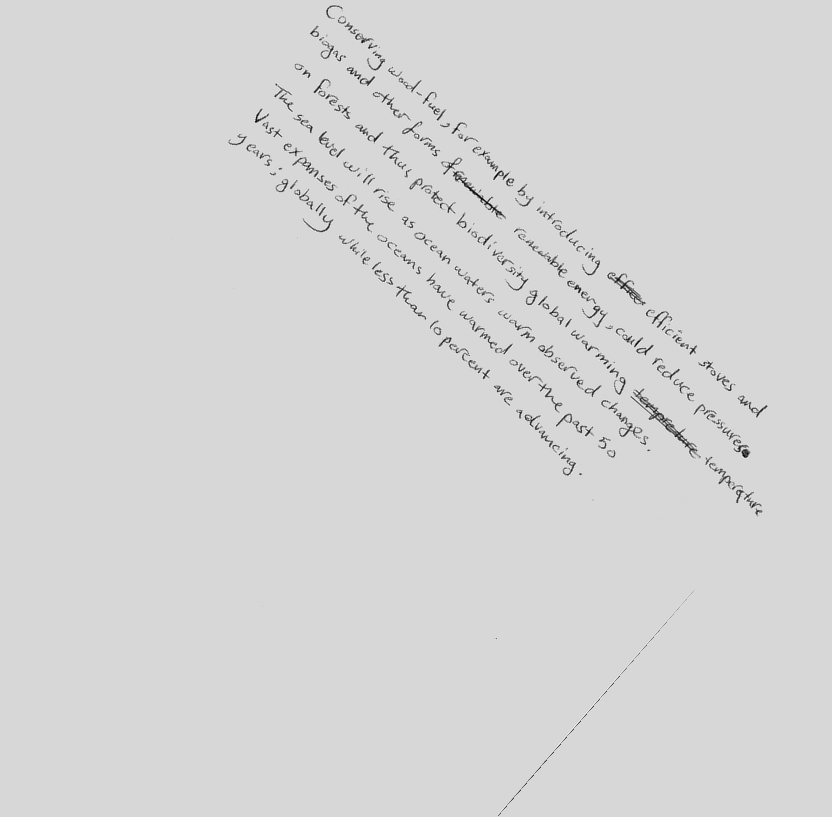 Conserving wood-fuel, for example by introducing efficient stoves and
biogas and other forms of renewable energy, could reduce pressures
on forests and thus protect biodiversity global warming temperature
The sea level will rise as ocean waters warm observed changes.
Vast expanses of the oceans have warmed over the past 50
years; globally while less than 10 percent are advancing.